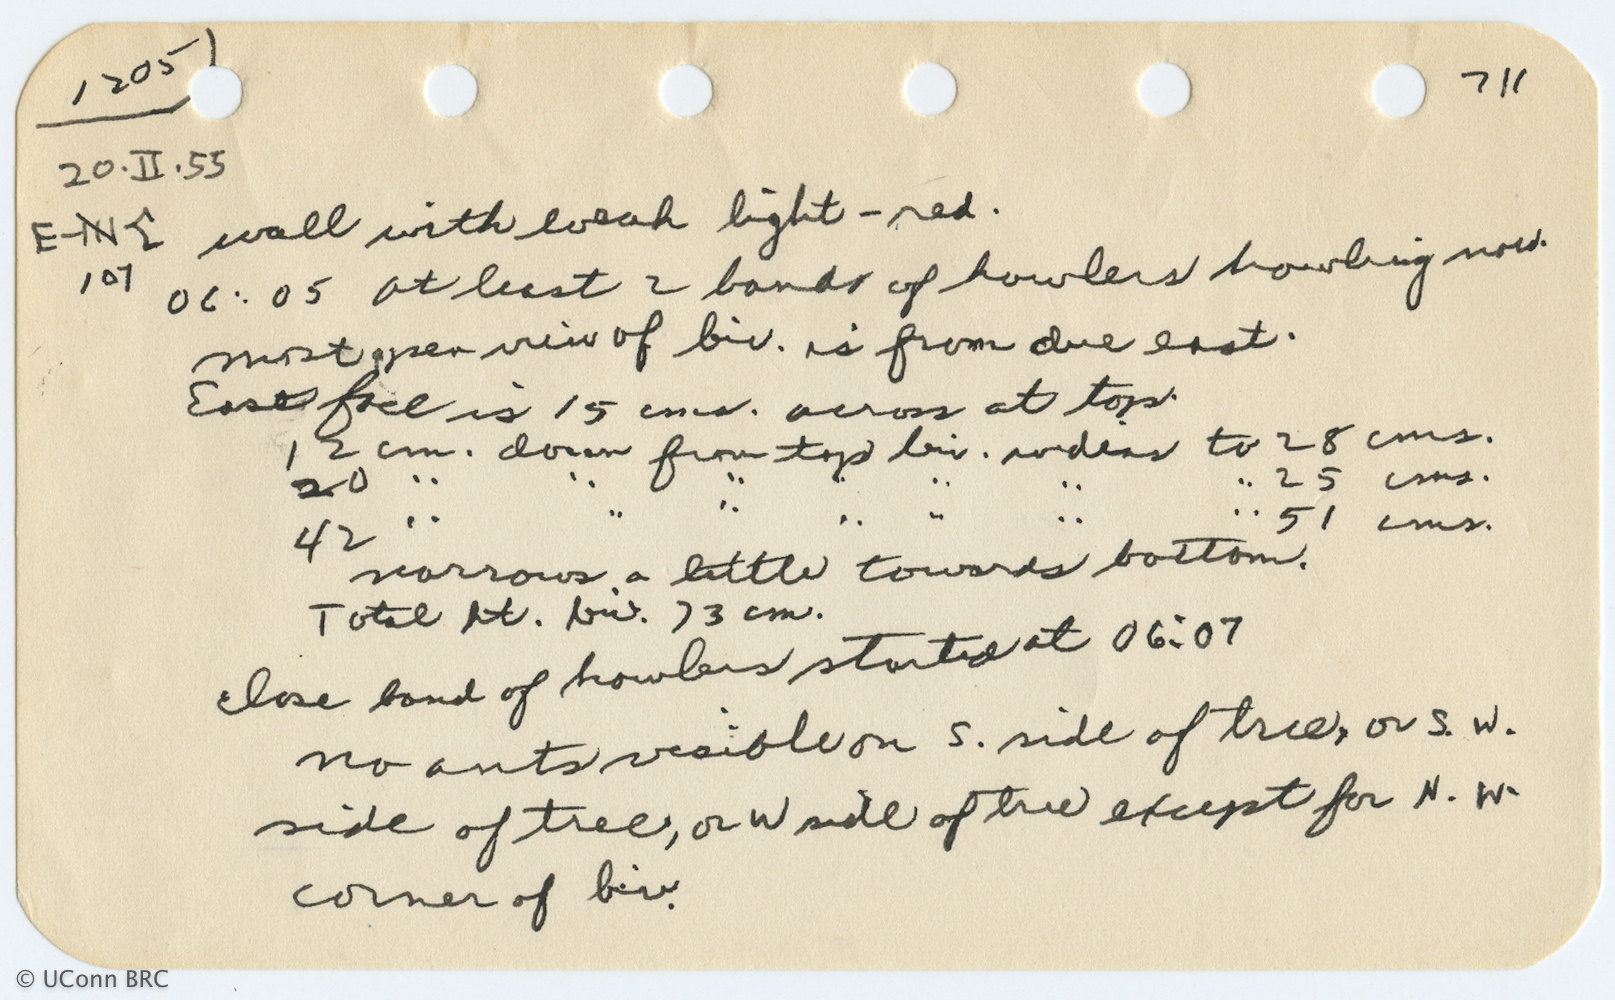 12051
711
20.II.55
E-N
107
wall with weak light-red.
06:05 at least 2 bands of howlers howling now.
most open view of biv. is from due east.
East face is 15 cms. across at top.
12 cm. down from top biv. widens to 28 cms.
20 " " " " " " " 25 cms.
42 " " " " " " " 51 cms.
narrows a little towards bottom.
Total ht. biv. 73 cm.
close band of howlers started at 06:07
no ants visible on S. side of tree, or S.W.
side of tree, or W side of tree except for N.W.
corner of biv.
© UConn BRC